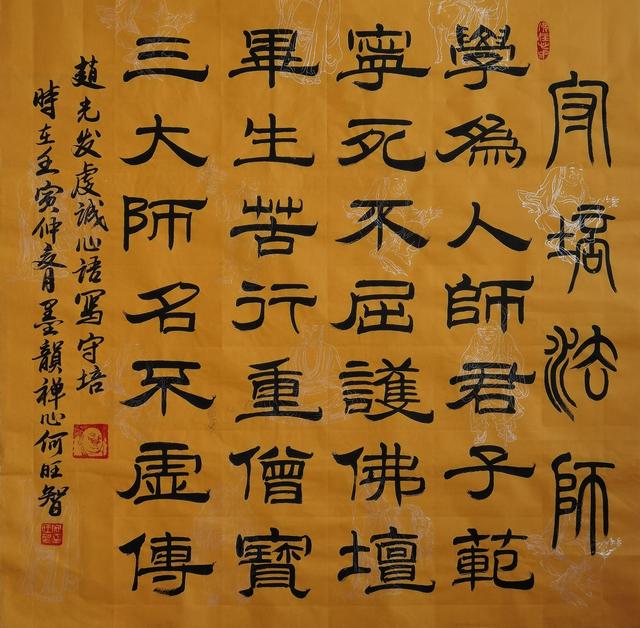 守培法師
學爲人師君子範
寧死不屈護佛壇
畢生苦行重僧寶
三大師名不虛傳
趙光发虔誠心語寫守培
時在壬寅仲夏月墨韻禪心何旺智